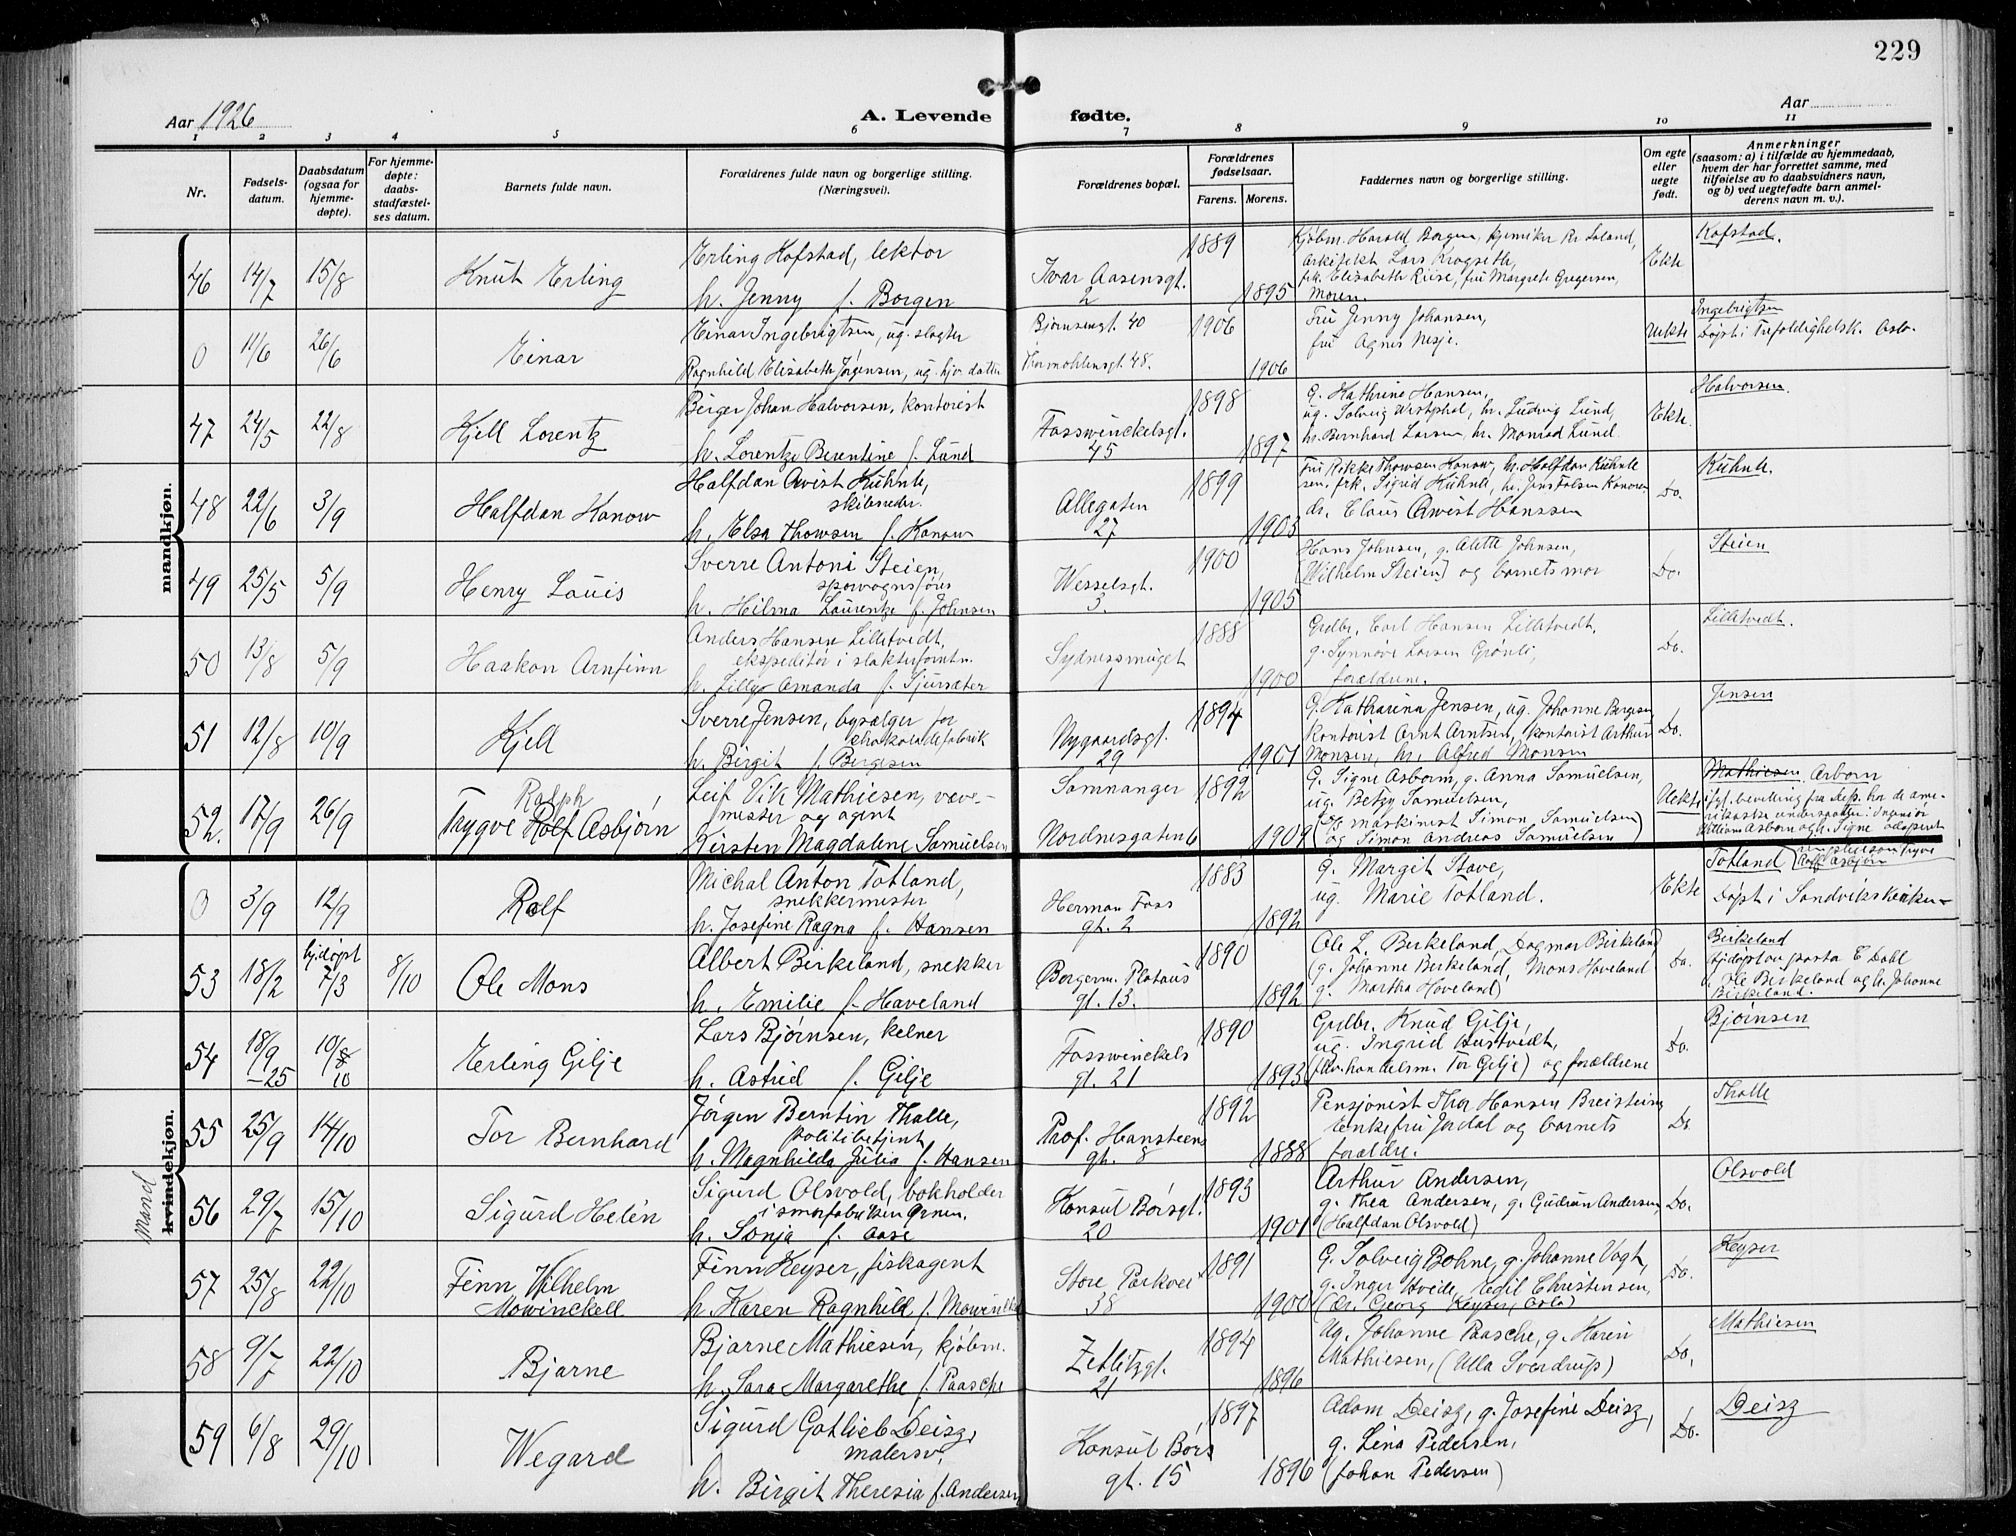 229
Aar 1926
A. Levende fødte.
Aar
1 2 3 4 5 6 7 8 9 10 11
Nr.
Fødselsdatum.
Daabsdatum (ogsaa for hjemmedøpte).
For hjemmedøpte: daabsstadfæstelses datum.
Barnets fulde navn.
Forældrenes fulde navn og borgerlige stilling. (Næringsvei).
Forældrenes bopæl.
Forældrenes fødselsaar.
Farens. Morens.
Faddernes navn og borgerlige stilling.
Om egte eller uegte født.
Anmerkninger
(saasom: a) i tilfælde av hjemmedaab, hvem der har forrettet samme, med tilføielse av to daabsvidners navn, og b) ved uegtefødte barn anmelderens navn m. v.).
mandkjøn.
46 14/7 15/8 Knut Erling
Erling Hofstad, lektor
h. Jenny f. Borgen
Ivar Aasensgt. 2
1889 1895
Kjøbm. Harald Borgen, kjemiker Kr. Loland,
arkitekt Lars Krogseth,
frk. Elizabeth Riise, fru Margrete Gregersen,
Moren.
Ekte
Hofstad.
0 11/6 26/6 Einar
Einar Ingebrigtsen, ug. slagter
Ragnhild Elizabeth Jørgensen, ug. hjv. datter
Bjørnsengt. 40
Thormøhlensgt. 48.
1906 1906
Fru Jenny Johansen,
fru Agnes Nesje.
Uekte
Ingebrigtsen
Døpt i Trefoldighetsk. Oslo.
47 24/5 22/8 Kjell Lorentz
Birger Johan Halvorsen, kontorist
h. Lorentze Berentine f. Lund
Fosswinckelsgt. 45
1898 1897
G. Kathrine Hansen,
ug. Solveig Westphal, hr. Ludvig Lund,
hr. Bernhard Larsen, hr. Monrad Lund.
Ekte.
Halvorsen.
48 22/6 3/9 Halfdan Konow
Halfdan Qvist Kühnle,
skibsreder.
h. Elsa Thowsen f. Konow
Allegaten 27
1899 1903
Fru Rikke Thowsen Konow, hr. Halfdan Kühnle
sen. frk. Sigrid Kühnle, hr. Jens Folsen Konow,
dr. Claus Qwist Hanssen
Do.
Kühnle.
49 25/5 5/9 Henry Louis
Sverre Antoni Steien,
sporvognsfører
h. Hilma Laurentze f. Johnsen
Wesselsgt. 3.
1900 1905
Hans Johnsen, g. Alette Johnsen,
(Wilhelm Steien) og barnets mor
Do.
Steien
50 13/8 5/9 Haakon Arnfinn
Anders Hansen Lilletvedt,
ekspeditør i slakterforretn.
h. Lilly Amanda f. Sjursæter
Sydnessmuget 1
1888 1900
Grdbr. Carl Hansen Lilletvedt,
g. Synnøve Larsen Grønli,
forældrene.
Do.
Lilletvedt.
51 12/8 10/9 Kjell
Sverre Jensen, bysælger for
chokoladefabrik
h. Birgit f. Bergesen
Nygaardsgt. 29
1894 1901
G. Katharina Jensen, ug. Johanne Bergesen,
Kontorist Arnt Arntsen, kontorist Arthur
Monsen, hr. Alfred Monsen
Do.
Jensen
52. 17/9 26/9 Ralph
Trygve Rolf Asbjørn
Leif Vik Mathiesen, væve-
mester og agent
Kirsten Magdalene Samuelsen
Samnanger
Nordnesgaten 6
1892 1909
G. Signe Asborn, g. Anna Samuelsen,
ug. Betzy Samuelsen,
(og maskinist Simon Samuelsen)
og Simon Andreas Samuelsen
Uekte
Mathiesen, Asborn
ifgl. bevilling fra Dep. har de ame-
rikanske undersaatter: Ingeniør
William Asborn og h. Signe adoptert
Mand
kvindekjøn.
0 3/9 12/9 Rolf
Michal Anton Totland,
snekkermester
h. Josefine Ragna f. Hansen
Herman Foss
gt. 2
1883 1892
G. Margit Stave,
ug. Marie Totland.
Ekte
Totland
Døpt i Sandvikskirken
53 18/2 hj.døpt 7/3 8/10 Ole Mons
Albert Birkeland, snekker
h. Emilie f. Haveland
Borgerm. Platous
gt. 13.
1890 1892
Ole L. Birkeland, Dagmar Birkeland
(g. Johanne Birkeland, Mons Hoveland
g. Martha Hoveland)
Do.
Birkeland
hjdøpt av pasta E Dahl
Ole Birkeland og h. Johanne
Birkeland.
54 18/9 -25 10/10 Erling Gilje
Lars Bjørnsen, kelner
h. Astrid f. Gilje
Fosswinckels
gt. 21
1890 1893
Grdbr. Knud Gilje,
ug. Ingrid Austvidt,
(Av.handelsm. Tor Gilje) og forældrene
Do.
Bjørnsen
55 25/9 14/10 Tor Bernhard
Jørgen Berntin Thalle,
politibetjent
h. Magnhilda Julia f. Hansen
Prof. Hansteens
gt. 8
1892 1888
Pensjonist Thor Hansen Breistein,
Enkefru Jordal og barnets
forældre.
Do.
Thalle
56 29/7 15/10 Sigurd Helén
Sigurd Olsvold, bokholder
i smørfabrikken Ørnen.
h. Sonja f. Aase
Konsul Børsgt.
20
1893 1901
Arthur Andersen,
g. Thea Andersen, g. Gudrun Andersen,
(Halfdan Olsvold)
Do.
Olsvold
57 25/8 22/10 Finn Wilhelm
Mowinckell
Finn Keyser, fiskagent
h. Karen Ragnhild f. Mowinckel
Store Parkvei
38
1891 1900
G. Solveig Bohne, g. Johanne Vogt,
g. Inger Hvide, Edil Christensen,
(Dr. Georg Keyser, Oslo)
Do.
Keyser
58 9/7 22/10 Bjarne
Bjarne Mathiesen, kjøbm.
h. Sara Margarethe f. Paasche
Zetlitzgt.
21
1894 1896
Ug. Johanne Paasche, g. Karen
Mathiesen, (Ulla Sverdrup)
Do.
Mathiesen
59 6/8 29/10 Wegard
Sigurd Gotlieb Deisz,
malersv.
h. Birgit Theresia f. Andersen
Konsul Børs
gt. 15
1897 1896
Adam Deisz, g. Josefine Deisz,
g. Lina Pedersen,
(Johan Pedersen)
Do.
Deisz